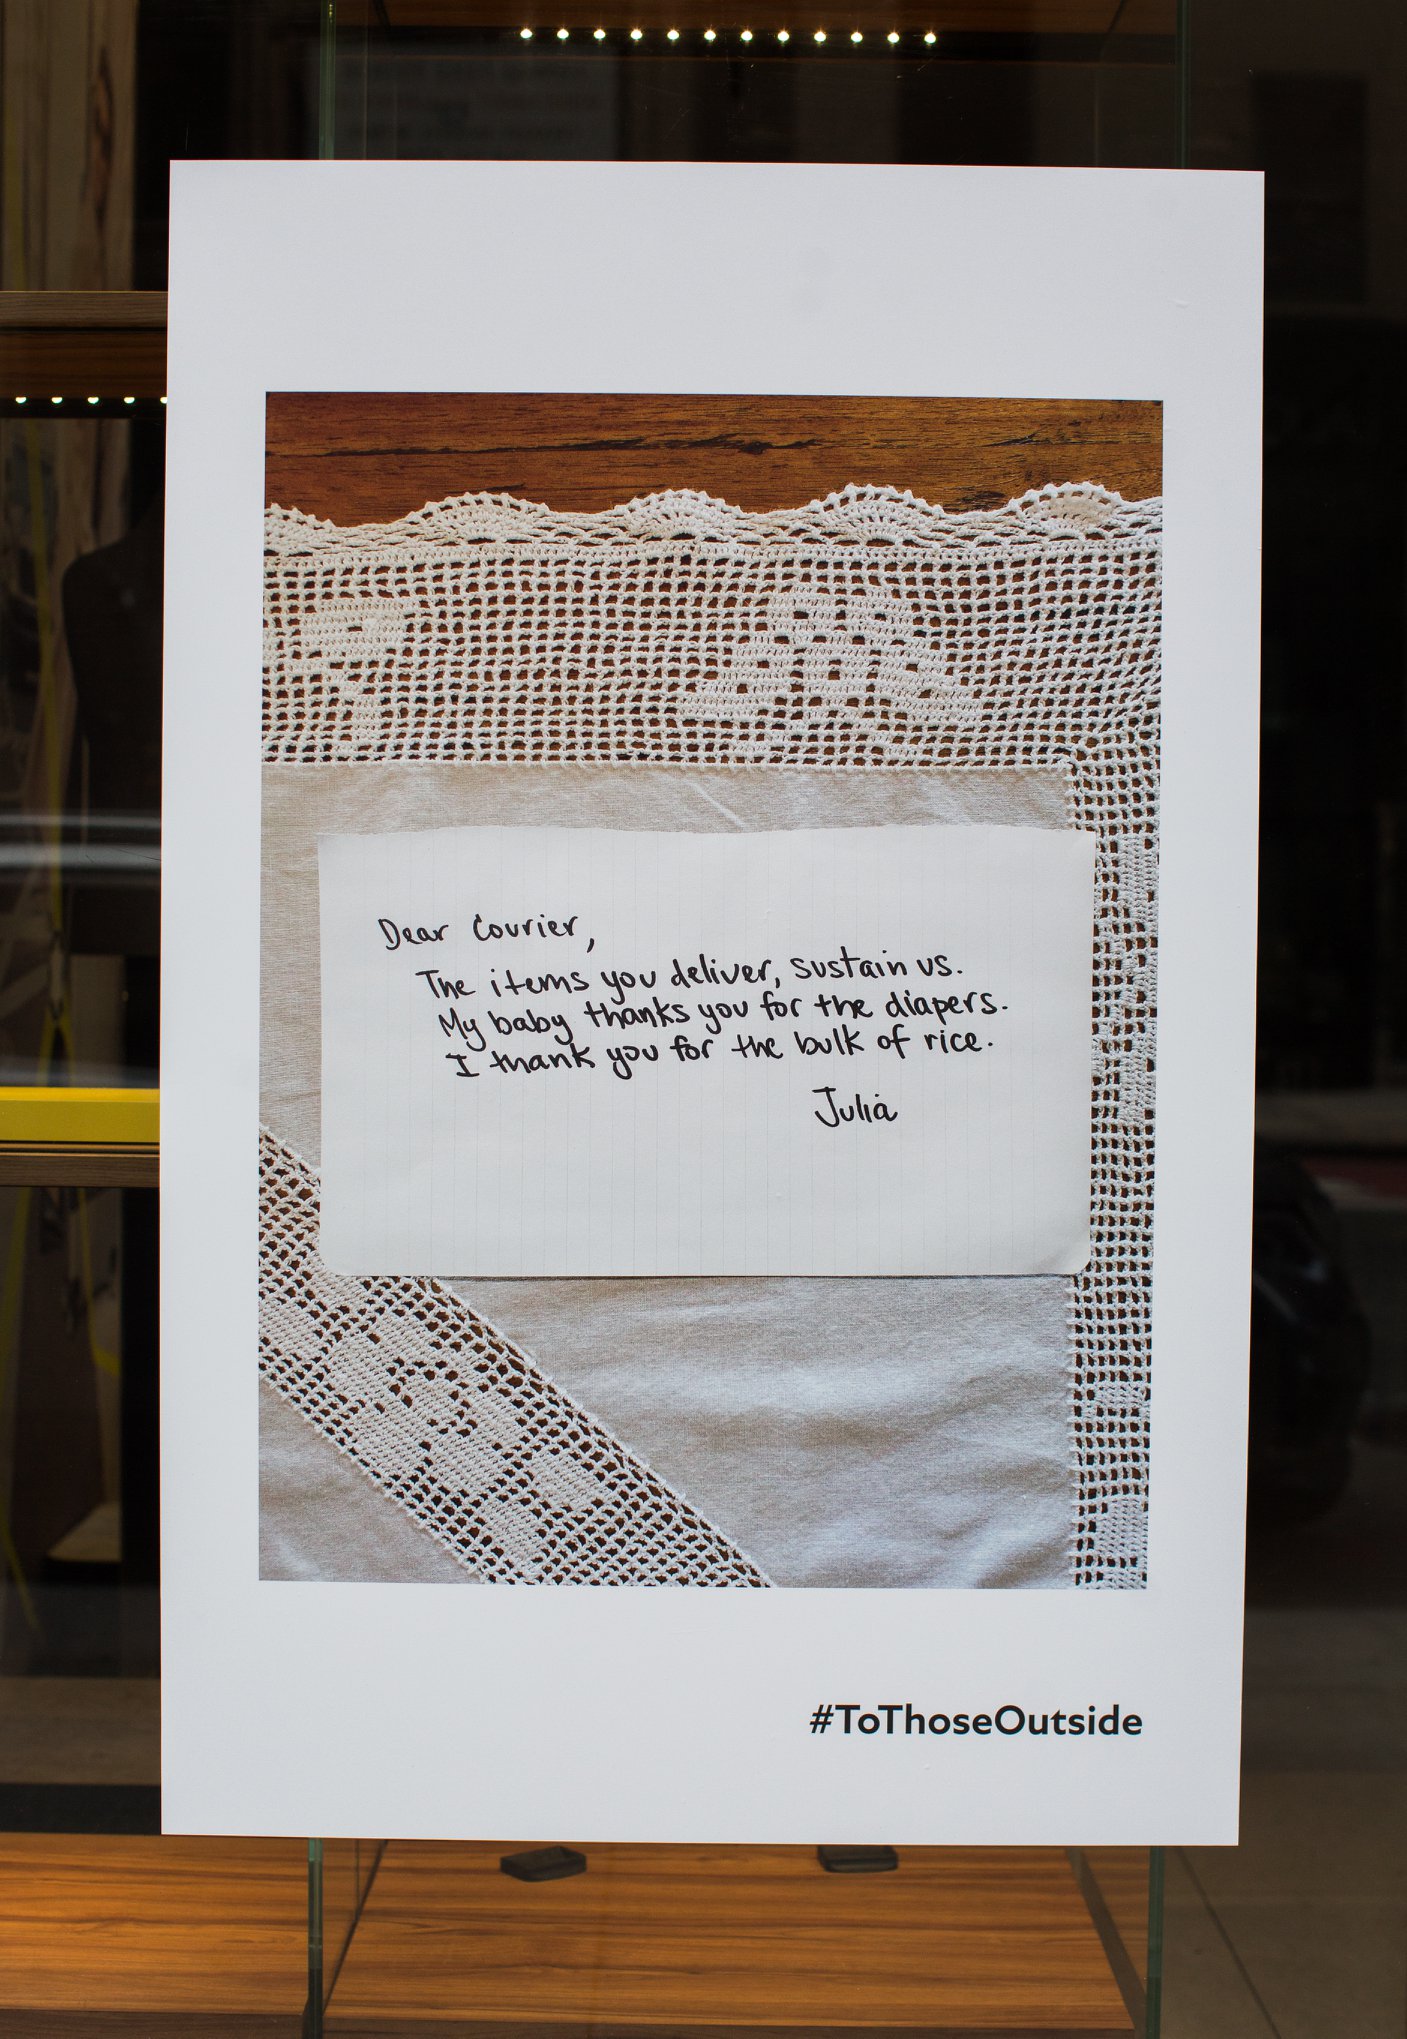 Dear Courier,
The items you deliver, sustain us.
My baby thanks you for the diapers.
I thank you for the bulk of rice.
Julia
#ToThoseOutside